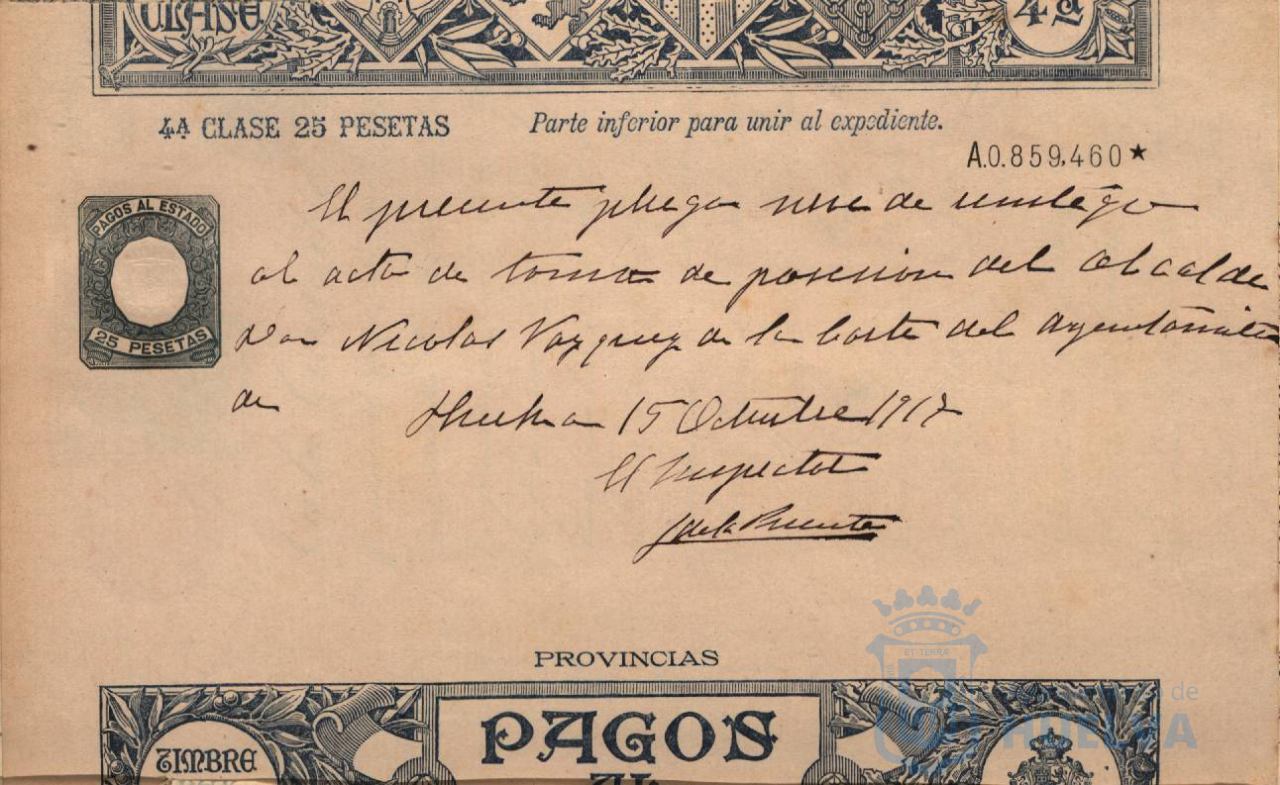 CLASE 4ª
4ª CLASE 25 PESETAS
Parte inferior para unir al expediente.
A.0.859,460★
PAGOS AL ESTADO
25 PESETAS
El presente pliego sirve de reintegro
al acta de toma de posesion del Alcalde
Don Nicolas Vazquez de la Corte del Ayuntamiento
de Huelva 15 Octubre 1917
El Inspector
J de la Puente
PROVINCIAS
TIMBRE
PAGOS
AL
ET TERRÆ
de
HUELVA